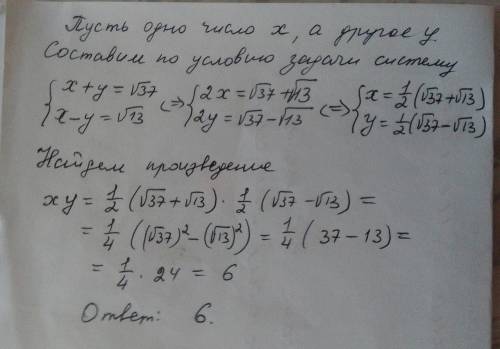 Пусть одно число x, а другое y.
Составим по условию задачи систему
{ x+y = √37 <=> { 2x = √37 + √13 <=> { x = 1/2 (√37+√13)
{ x-y = √13 { 2y = √37 - √13 { y = 1/2 (√37-√13)
Найдем произведение
xy = 1/2 (√37 + √13) · 1/2 (√37 - √13) =
= 1/4 ((√37)² - (√13)²) = 1/4 (37 - 13) =
= 1/4 · 24 = 6
Ответ: 6.